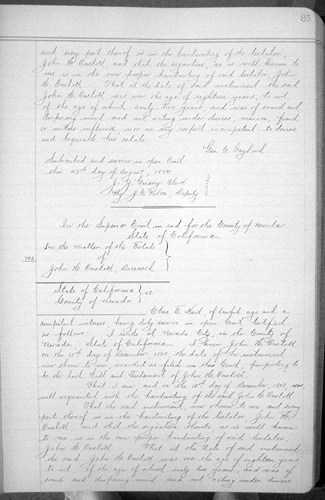 85
and every part thereof is in the handwriting of the testator,
John H. and that the signature, as is well known to
me is in the own proper handwriting of said testator John
H. That at the date of said instrument the said
John H. was over the age of eighteen years, to wit,
of the age of about sixty two years, and was of sound and
disposing mind and not acting under duress, menace, fraud
or undue influence nor in any respect incompetent to devise
and bequeath his estate.
Geo. C. Gaylord
Subscribed and sworn in open Court
this day of August,
Clerk
By J. E. Deputy
In the Superior Court in and for the County of Nevada
State of California
In the Matter of the Estate
of
John H. Deceased
State of California } ss
County of Nevada
of lawful age and a
competent witness being duly sworn in open Court testified
as follows: I reside at Nevada City, in the County of
Nevada State of California. I knew John H.
on the day of December the date of the instrument
now shown to me, marked as filed in this Court, purporting to
be the last Will and Testament of John H.
That I am and on the day of December was
well acquainted with the handwriting of said John H.
That the said instrument, now shown to me, and every
part thereof is in the handwriting of the testator, John H.
and that the signature thereto as is well known
to me is in the own proper handwriting of said testator,
John H. That at the date of said instrument
the said John H. was over the age of eighteen years
to wit: of the age of about sixty two years, and was of
sound and disposing mind and not acting under duress